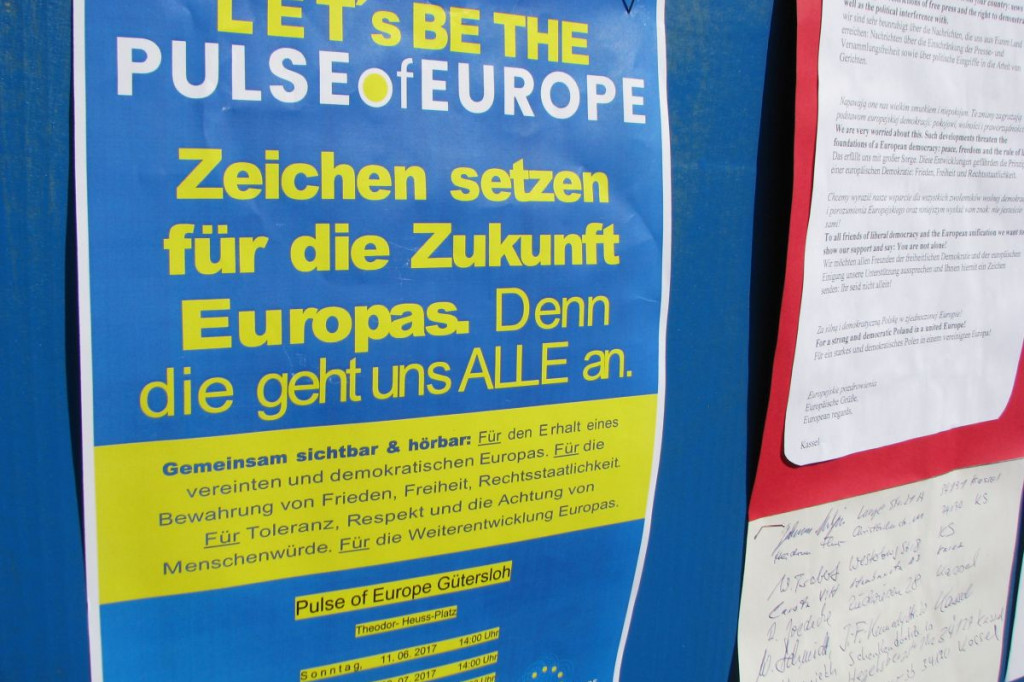 LET's BE THE
PULSEofEUROPE
Zeichen setzen
für die Zukunft
Europas. Denn
die geht uns ALLE an.
Gemeinsam sichtbar & hörbar: Für den Erhalt eines
vereinten und demokratischen Europas. Für die
Bewahrung von Frieden, Freiheit, Rechtsstaatlichkeit.
Für Toleranz, Respekt und die Achtung von
Menschenwürde. Für die Weiterentwicklung Europas.
Pulse of Europe Gütersloh
Theodor- Heuss-Platz
Sonntag, 11.06.2017 14:00 Uhr
07.2017 14:00 Uhr
of free press and the right to demonstra
well as the political interference with.
wir sind sehr beunruhigt über die Nachrichten, die uns aus Eurem Land
erreichen: Nachrichten über die Einschränkung der Presse- und
Versammlungsfreiheit sowie über politische Eingriffe in die Arbeit von
Gerichten.
Napawają one nas wielkim smutkiem i niepokojem. Te zmiany zagrażają
podstawom europejskiej demokracji: pokojowi, wolności i praworządności
We are very worried about this. Such developments threaten the
foundations of a European democracy: peace, freedom and the rule of l
Das erfüllt uns mit großer Sorge. Diese Entwicklungen gefährden die Prinzip
einer europäischen Demokratie: Frieden, Freiheit und Rechtsstaatlichkeit.
Chcemy wyrazić nasze wsparcie dla wszystkich zwolenników wolnej demokracji
i porozumienia Europejskiego oraz niniejszym wysłać wam znak, nie jesteście
sami!
To all friends of liberal democracy and the European unification we want to
show our support and say: You are not alone!
Wir möchten allen Freunden der freiheitlichen Demokratie und der europäischen
Einigung unsere Unterstützung aussprechen und Ihnen hiermit ein Zeichen
senden: Ihr seid nicht allein!
Za silną i demokratyczną Polskę w zjednoczonej Europie!
For a strong and democratic Poland in a united Europe!
Für ein starkes und demokratisches Polen in einem vereinigten Europa!
Europejskie pozdrowienia
Europäische Grüße,
European regards,
Kassel
KS
KS
Kassel
Kassel